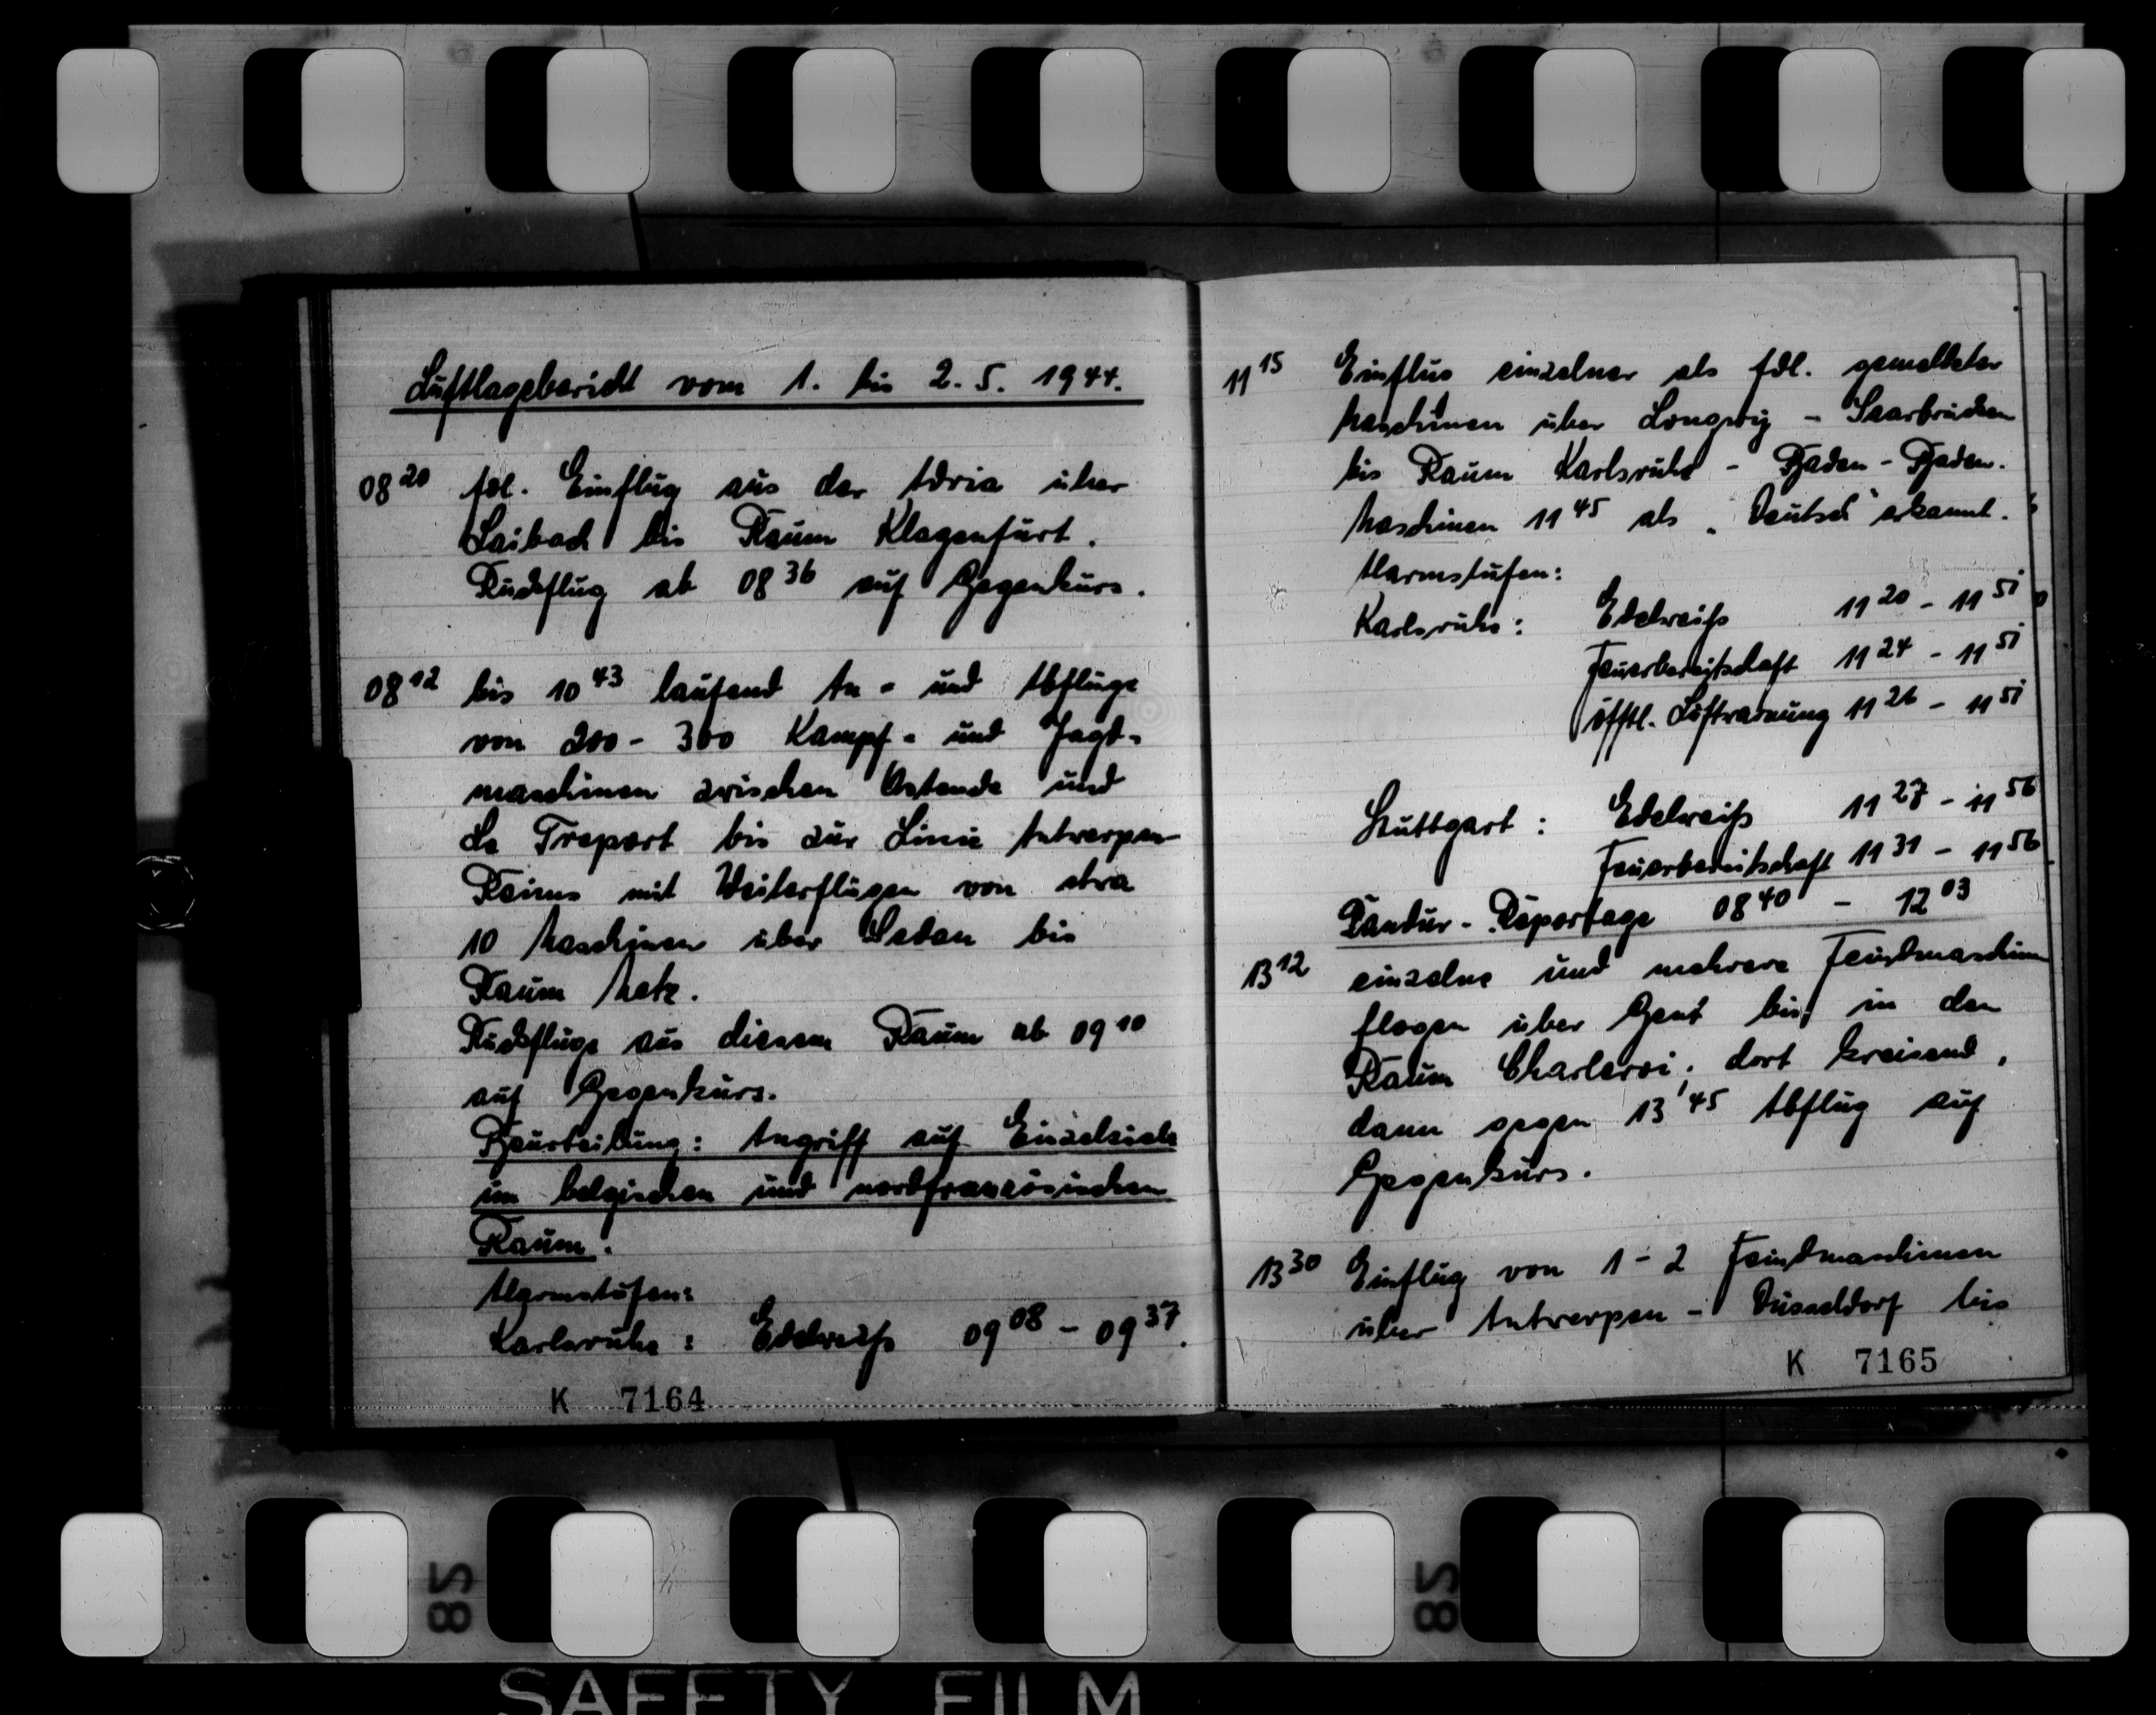 Luftlagebericht vom 1. bis 2. 5. 1944.
08 20 fdl. Einflug aus der Adria über
Laibach bis Raum Klagenfurt.
Rückflug ab 08 36 auf Gegenkurs.
08 12 bis 10 43 laufend An- und Abflüge
von 200 - 300 Kampf- und Jagd-
maschinen zwischen Ostende und
Le Treport bis zur Linie Antwerpen-
Reims mit Weiterflügen von etwa
10 Maschinen über Sedan bis
Raum Metz.
Rückflüge aus diesem Raum ab 09 10
auf Gegenkurs.
Beurteilung: Angriff auf Einzelziele
im belgischen und nordfranzösischen
Raum.
Alarmstufen:
Karlsruhe: Edelweiß 09 08 - 09 37.
K 7164
11 15 Einflug einzelner als fdl. gemeldeter
Maschinen über Longwy - Saarbrücken
bis Raum Karlsruhe - Baden-Baden.
Maschinen 11 45 als „Deutsch“ erkannt.
Alarmstufen:
Karlsruhe: Edelweiß 11 20 - 11 51
Feuerbereitschaft 11 24 - 11 51
öfftl. Luftwarnung 11 26 - 11 51
Stuttgart: Edelweiß 11 27 - 11 56
Feuerbereitschaft 11 31 - 11 56
Pandur-Reportage 08 40 - 12 03
13 12 einzelne und mehrere Feindmaschinen
flogen über Gent bis in den
Raum Charleroi, dort kreisend,
dann gegen 13 45 Abflug auf
Gegenkurs.
13 30 Einflug von 1-2 Feindmaschinen
über Antwerpen - Düsseldorf bis
K 7165
82
82
SAFETY FILM